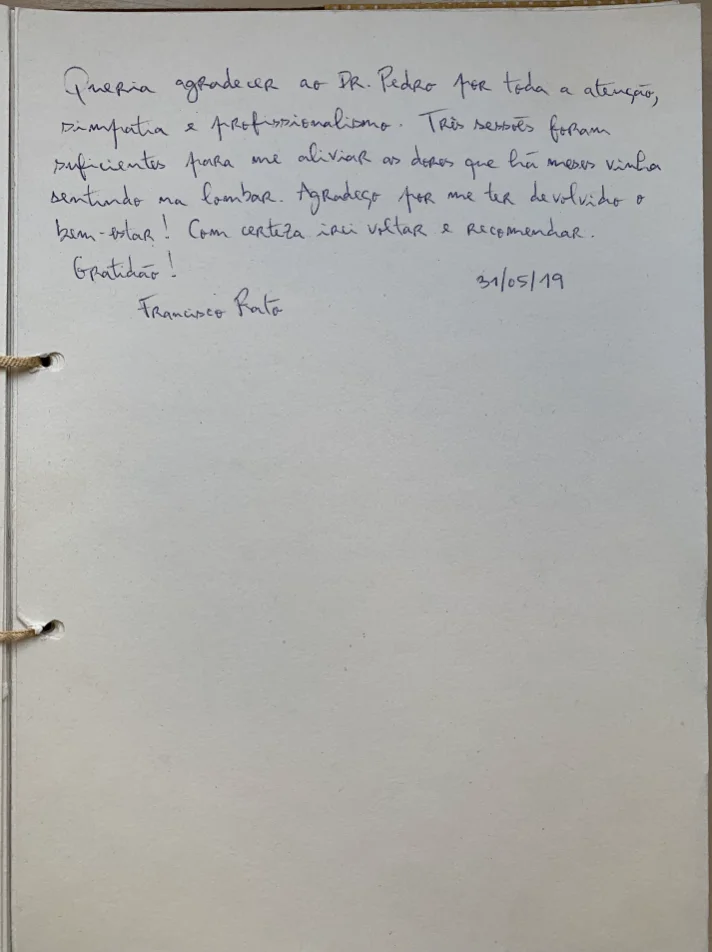 Queria agradecer ao Dr. Pedro por toda a atenção,
simpatia e profissionalismo. Três sessões foram
suficientes para me aliviar as dores que há meses vinha
sentindo na lombar. Agradeço por me ter devolvido o
bem-estar! Com certeza irei voltar e recomendar.
Gratidão!
31/05/19
Francisco Rato